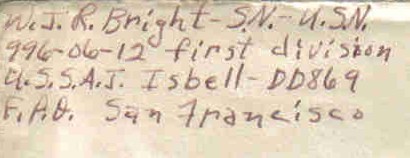 W. J. R. Bright - S.N. - U.S.N.
996-06-12 first division
U.S.S.A.J. Isbell - DD869
F.P.O. San Francisco